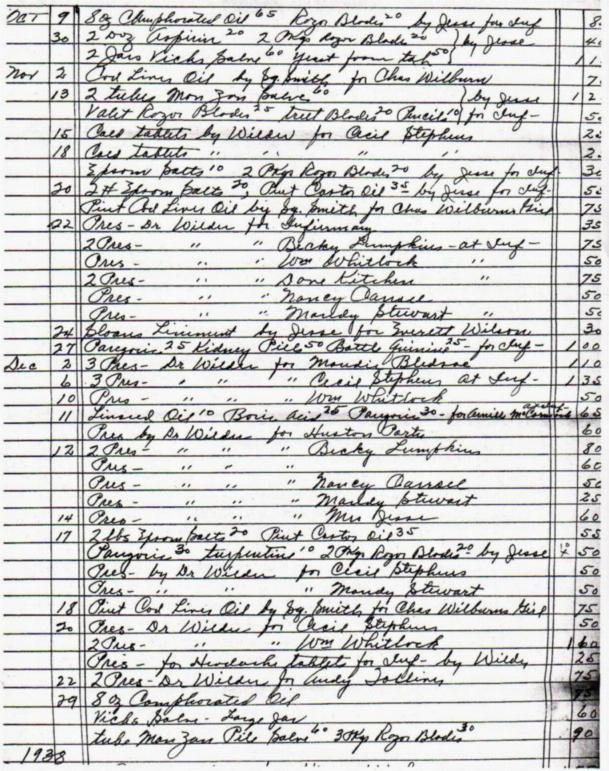 Oct 9 8 oz Camphorated Oil 65 Razor Blades 20 by Jesse for Inf 8
30 2 Doz Aspirin 20 2 Pkgs Razor Blades 20 } by Jesse 4
2 Jars Vicks Salve 60 Yeast foam tab 50 } 11
Nov 2 Cod Liver Oil by Sg. Smith for Chas Wilburn 7
13 2 tubes Mon Zan Salve 60 } by Jesse 12
Valet Razor Blades 25 treet Blades 20 Pencils 10 } for Inf- 50
15 Cold tablets by Wilder for Cecil Stephens 25
18 Cold tablets " " " " 2
Epsom Salts 10 2 Pkgs Razor Blades 20 by Jesse for Inf- 30
20 2# Epsom Salts 20, Pint Castor Oil 35 by Jesse for Inf- 55
Pint Cod Liver Oil by Sg. Smith for Chas Wilburns Girl 75
22 Pres- Dr Wilder for Infirmary 35
2 Pres- " " Becky Lumpkins - at Inf- 75
Pres- " " Wm Whitlock 50
2 Pres- " " Done Kitchen " 75
Pres- " " Nancy 50
Pres- " " Mandy Stewart " 50
24 Sloans Liniment by Jesse for Everett Wilson 30
27 Paregoric 25 Kidney Pills 50 Bottle Quinine 25 - for Inf- 1 00
Dec 2 3 Pres- Dr Wilder for Maudie Bledsoe 1 10
6 3 Pres- " " Cecil Stephens at Inf- 1 35
10 Pres- " " Wm Whitlock 50
11 Linseed Oil 10 Boric Acid 25 Paregoric 30 - for 65
Pres by Dr Wilder for Huston 60
12 2 Pres- " " Becky Lumpkins 80
Pres- " " 60
Pres- " " Nancy 50
Pres- " " Mandy Stewart 25
14 Pres- " " Mrs Jesse 60
17 2 lbs Epsom Salts 20 Pint Castor Oil 35 55
Paregoric 30 turpentine 10 2 Pkgs Razor Blades 20 - by Jesse 50
Pres- by Dr Wilder for Cecil Stephens 50
Pres- " " " Mandy Stewart 50
18 Pint Cod Liver Oil by Sg. Smith for Chas Wilburns Girl 75
20 Pres- Dr Wilder for Cecil Stephens 50
2 Pres- " " Wm Whitlock 1 60
Pres- for Headache tablets for Inf- by Wildr 25
22 2 Pres- Dr Wilder for Andy 75
29 8 oz Camphorated Oil 75
Vicks Salve - Large Jar 60
tube Man Zan Pile Salve 60 3 Pkgs Razor Blades 30 90
1938